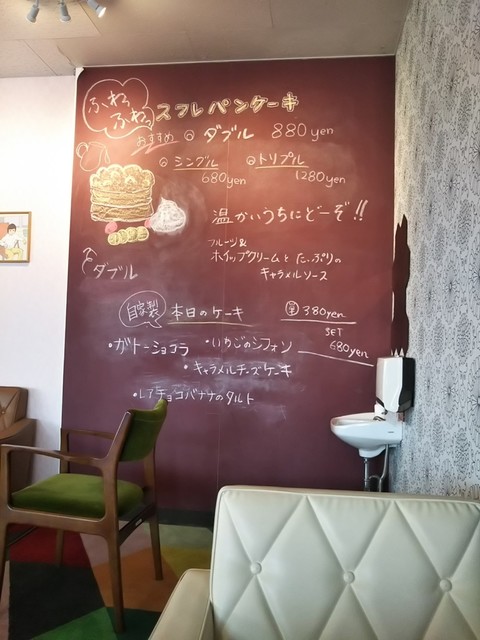 ふわっ
ふわっ
スフレパンケーキ
おすすめ ダブル 880yen
シングル
680yen
トリプル
1280yen
温かいうちにどーぞ!!
フルーツ&
ホイップクリームと たっぷりの
キャラメルソース
ダブル
自家製
本日のケーキ
単 380yen
SET
680yen
・ガトーショコラ
・いちごのシフォン
・キャラメルチーズケーキ
・レアチョコバナナのタルト